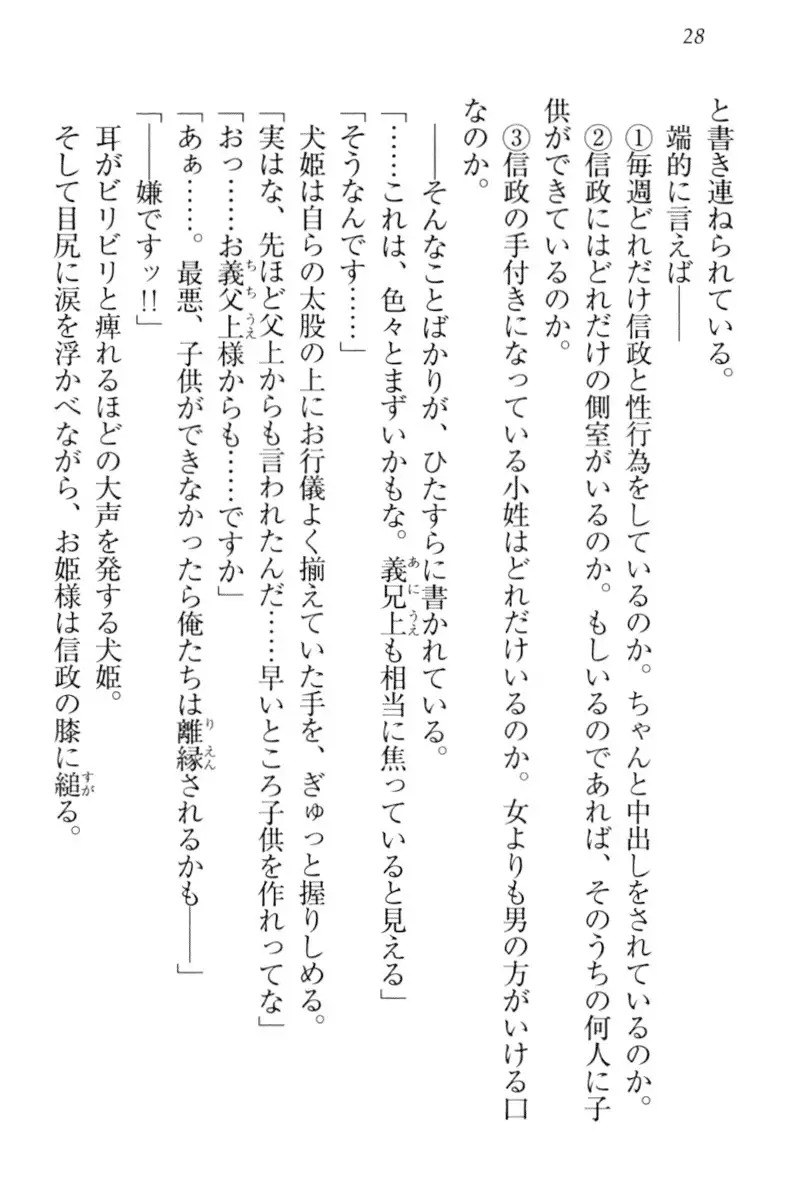 28
と書き連ねられている。
端的に言えば――
①毎週どれだけ信政と性行為をしているのか。ちゃんと中出しをされているのか。
②信政にはどれだけの側室がいるのか。もしいるのであれば、そのうちの何人に子
供ができているのか。
③信政の手付きになっている小姓はどれだけいるのか。女よりも男の方がいける口
なのか。
――そんなことばかりが、ひたすらに書かれている。
「……これは、色々とまずいかもな。義兄上も相当に焦っていると見える」
「そうなんです……」
犬姫は自らの太股の上にお行儀よく揃えていた手を、ぎゅっと握りしめる。
「実はな、先ほど父上からも言われたんだ……早いところ子供を作れってな」
「おっ……お義父上様からも……ですか」
「あぁ……。最悪、子供ができなかったら俺たちは離縁されるかも――」
「――嫌ですッ!!」
耳がビリビリと痺れるほどの大声を発する犬姫。
そして目尻に涙を浮かべながら、お姫様は信政の膝に縋る。